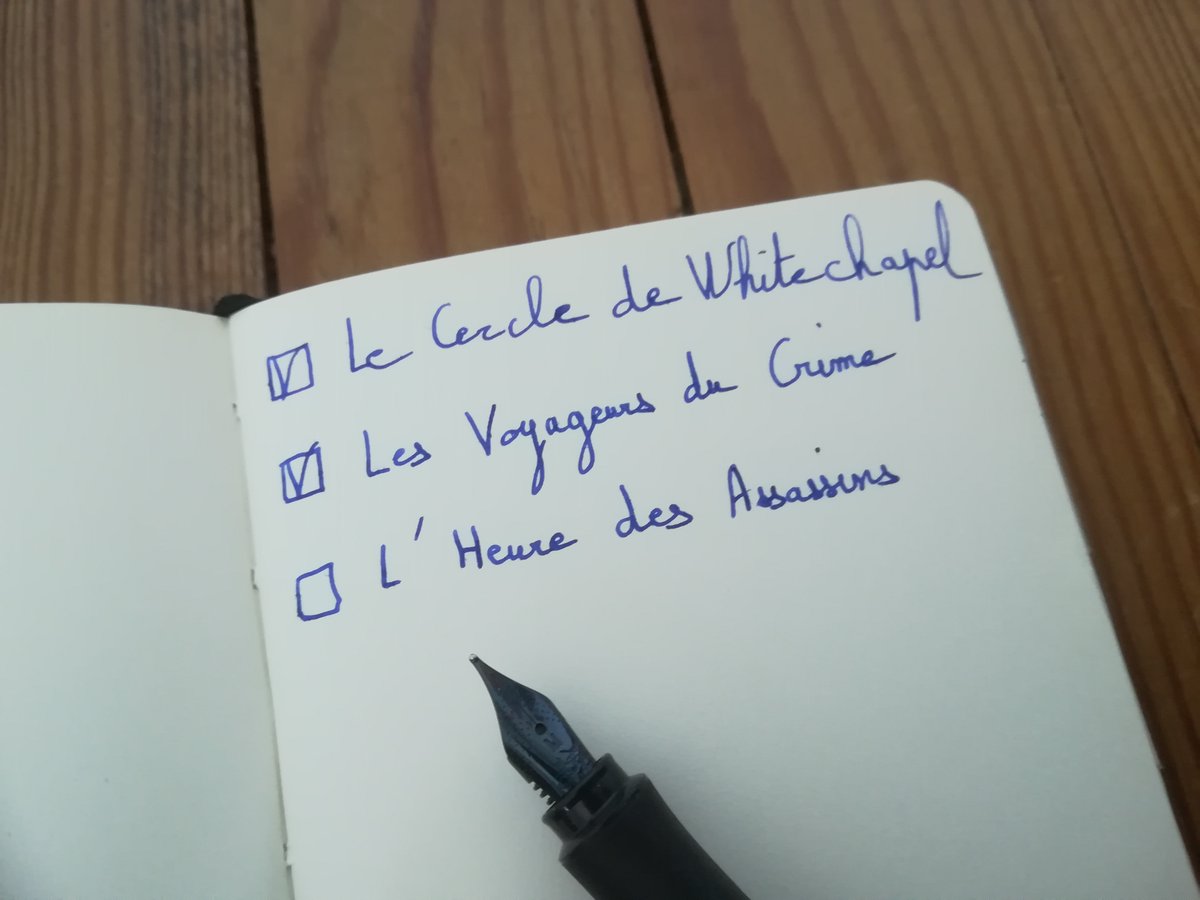 ☑ Le Cercle de Whitechapel
☑ Les Voyageurs du Crime
☐ L'Heure des Assassins